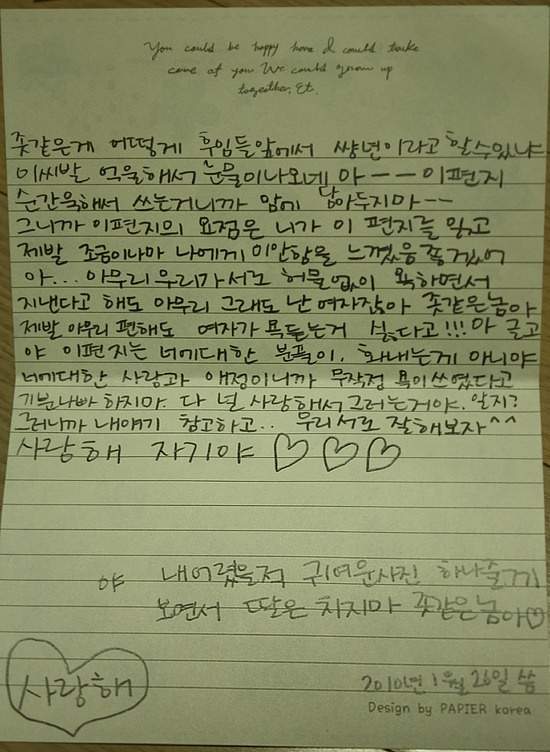 You could be happy here I could take
care of you We could grow up
together. Et.
좆같은게 어떻게 후임들앞에서 썅년이라고 할수있냐
이씨발 억울해서 눈물이나오네 아ㅡㅡ 이편지
순간욱해서 쓰는거니까 맘에 담아두지마ㅡㅡ
그니까 이편지의 요점은 니가 이 편지를 읽고
제발 조금이나마 나에게 미안함을 느꼈음 좋겠어
아... 아무리 우리가서로 허물없이 욕하면서
지낸다고 해도 아무리 그래도 난 여자잖아 좆같은놈아
제발 아무리 편해도 여자가 욕듣는거 싫다고!!! 아 글고
야 이편지는 너에대한 분풀이, 화내는게 아니야
너에대한 사랑과 애정이니까 무작정 욕이쓰였다고
기분나빠 하지마. 다 널 사랑해서그러는거야. 알지?
그러니까 내얘기 참고하고.. 우리서로 잘해보자^^
사랑해 자기야 ♡♡♡
야 내어렸을적 귀여운사진 하나줄게
보면서 딸은 치지마 좆같은놈아♡
사랑해
2010년 1월 26일 씀
Design by PAPIER korea